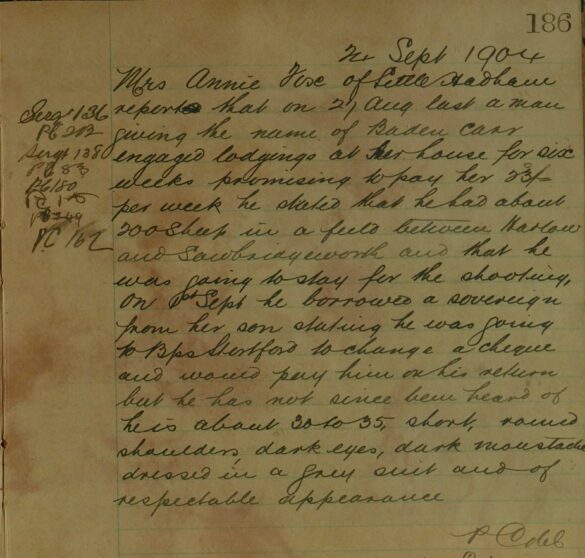 186
Sept 1904
Mrs Annie Fox of Little Hadham
reports that on 27 Aug last a man
giving the name of Baden Carr
engaged lodgings at her house for six
weeks promising to pay her 23/-
per week he stated that he had about
200 Sheep in a field between Harlow
and Sawbridgeworth and that he
was going to stay for the shooting,
On 1st Sept he borrowed a sovereign
from her son stating he was going
to Bps Stortford to change a cheque
and would pay him on his return
but he has not since been heard of
he is about 30 to 35, short, round
shoulders, dark eyes, dark moustache
dressed in a grey suit and of
respectable appearance
Sergt 136
PC 202
Sergt 138
PC 83
PC 249
PC 162